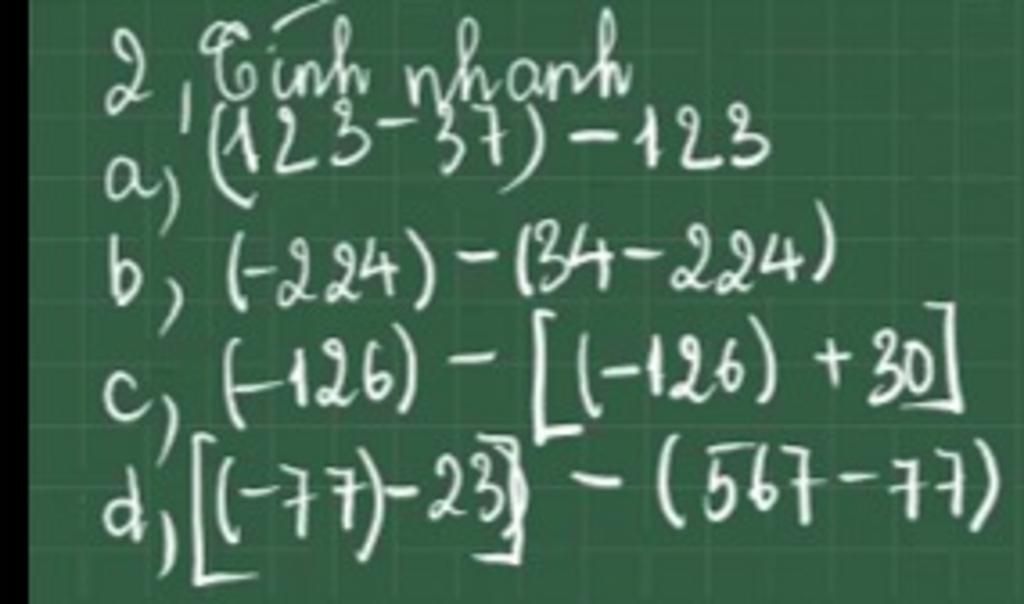 2, Tính nhanh
a, (123-37) - 123
b, (-224) - (34-224)
c, (-126) - [(-126) + 30]
d, [(-77)-23] - (567-77)